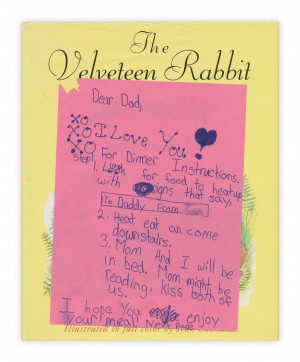 The
Velveteen Rabbit
Dear Dad,
XO
XO I Love You!
XO For Dinner Instructions,
Step 1. Look for food to heat up
with signs that say,
To Daddy From
2. Heat eat an come
downstairs.
3. Mom And I will be
in bed. Mom might be
reading, kiss both of
us.
I hope You enjoy
your meal
Illustrated in full color by